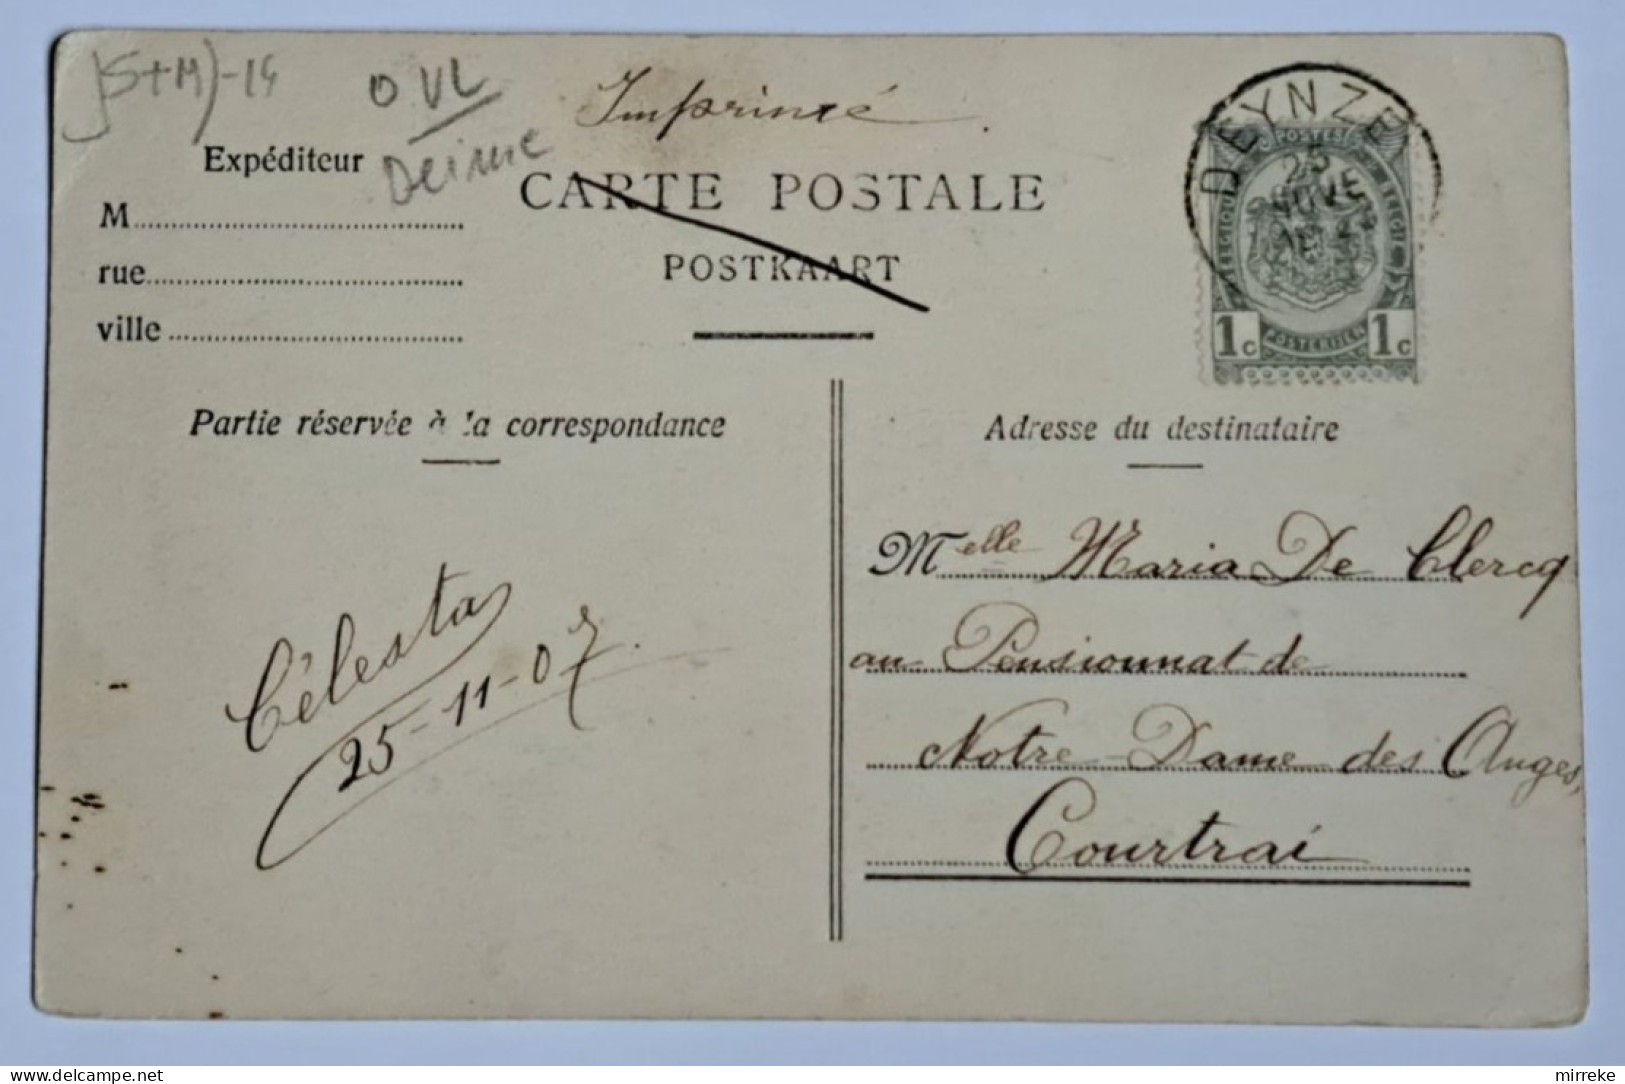 (S+M)-14
O VL
Deinze
Imprimé.
Expéditeur
M
rue
ville
CARTE POSTALE
POSTKAART
DEYNZE
25
NOVE
POSTES
BELGIQUE
BELGIE
POSTERIJEN
1c 1c
Partie réservée à la correspondance
Adresse du destinataire
Célesta
25-11-07.
Melle Maria De Clercq
au Pensionnat de
Notre-Dame des Anges,
Courtrai
mirreke